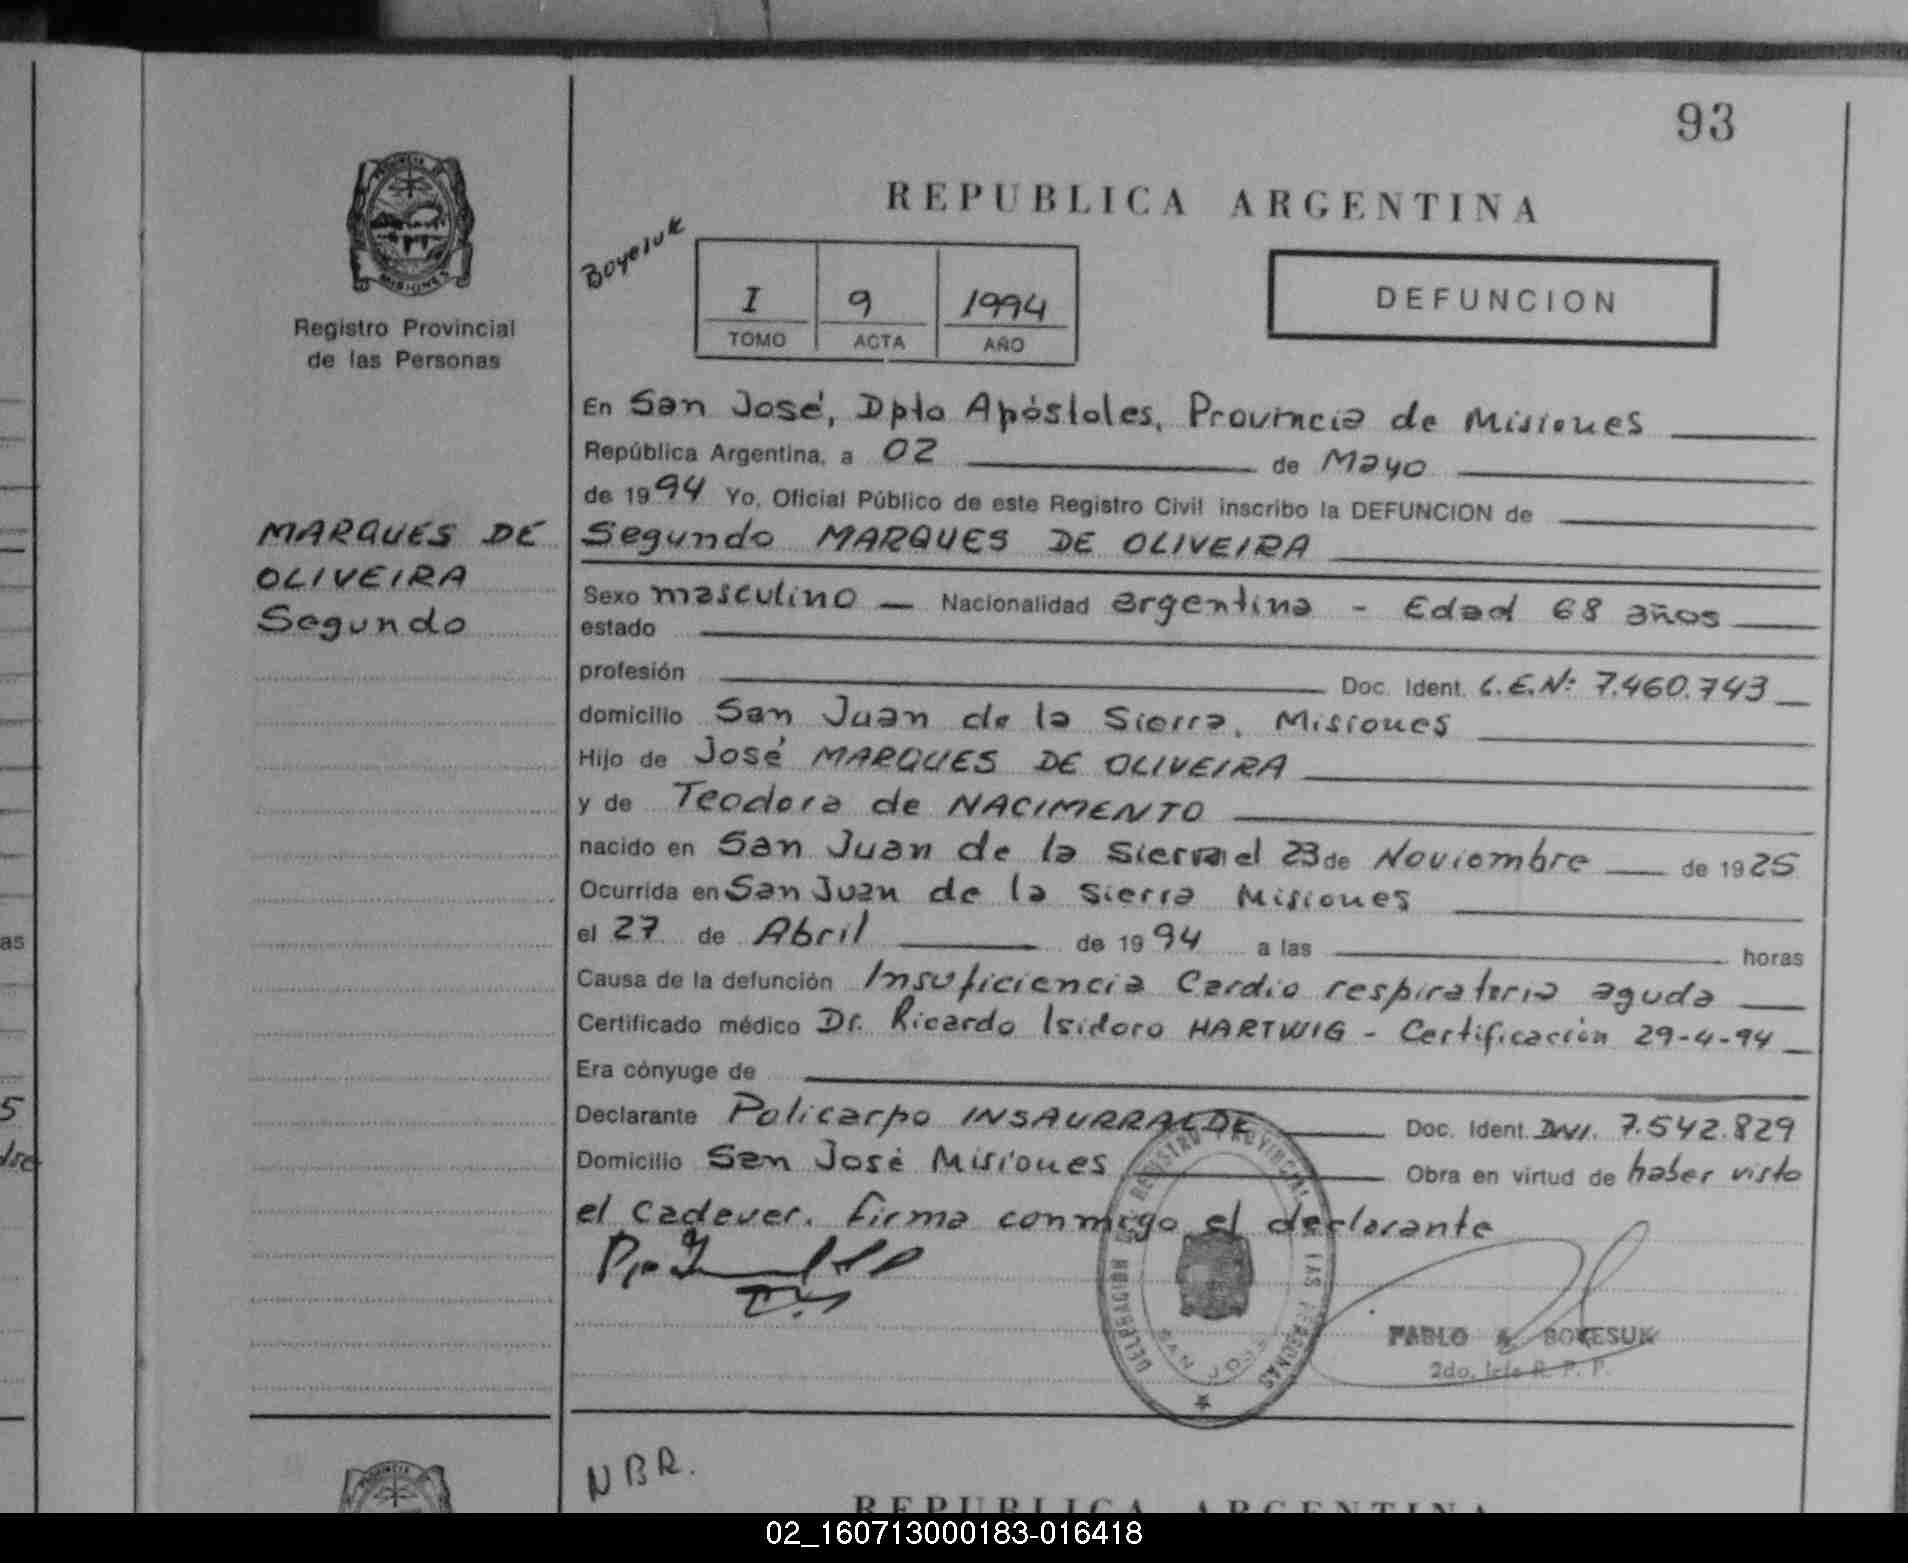 93
PROVINCIA DE
MISIONES
Registro Provincial
de las Personas
REPUBLICA ARGENTINA
DEFUNCION
I 9 1994
TOMO ACTA AÑO
En San José, Dpto Apóstoles, Provincia de Misiones
República Argentina, a 02 de Mayo
de 1994 Yo, Oficial Público de este Registro Civil inscribo la DEFUNCION de
MARQUES DE
OLIVEIRA
Segundo
Segundo MARQUES DE OLIVEIRA
Sexo masculino — Nacionalidad argentina - Edad 68 años
estado
profesión Doc. Ident. L.E.Nº 7.460.743
domicilio San Juan de la Sierra, Misiones
Hijo de José MARQUES DE OLIVEIRA
y de Teodora de NACIMENTO
nacido en San Juan de la Sierra el 23 de Noviembre de 1925
Ocurrida en San Juan de la Sierra Misiones
el 27 de Abril de 1994 a las horas
Causa de la defunción Insuficiencia Cardio respiratoria aguda
Certificado médico Dr. Ricardo Isidoro HARTWIG - Certificación 29-4-94
Era cónyuge de
Declarante Policarpo INSAURRALDE Doc. Ident. DNI. 7.542.829
Domicilio San José Misiones Obra en virtud de haber visto
el cadever. firma conmigo el declarante
DELEGACION DEL REGISTRO PROVINCIAL DE LAS PERSONAS
SAN JOSE
PABLO A. BOYESUK
R. P. P.
NBR.
REPUBLICA ARGENTINA
as
5
02_160713000183-016418